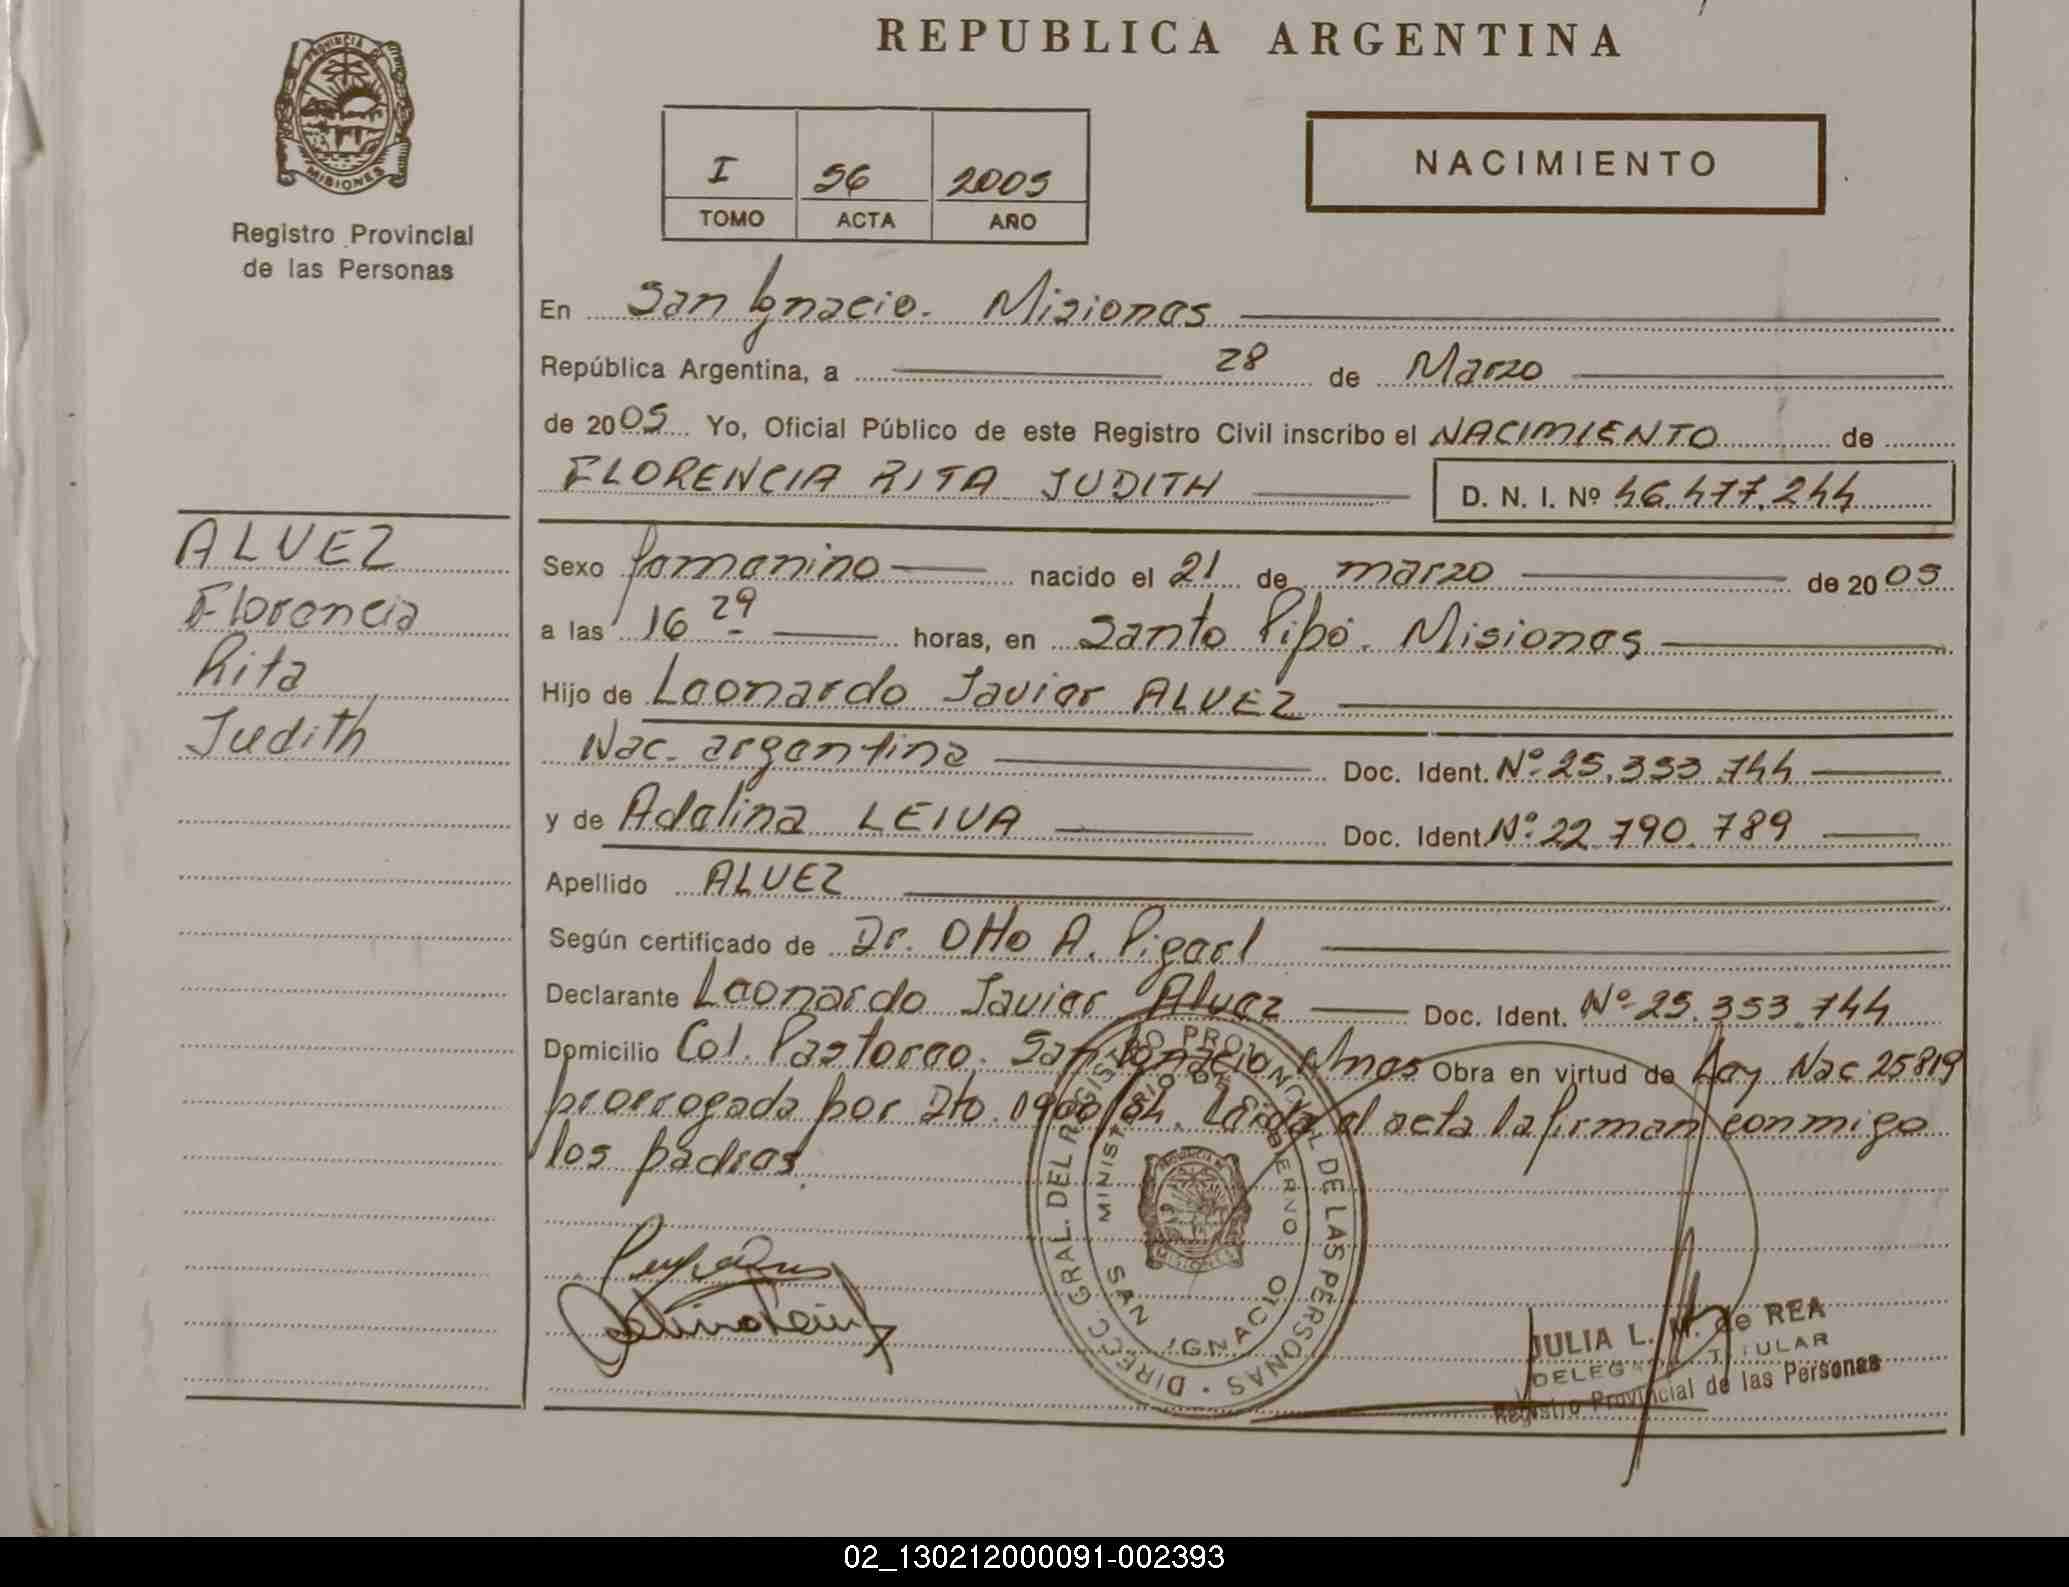 REPUBLICA ARGENTINA
PROVINCIA DE
MISIONES
Registro Provincial
de las Personas
I 56 2005
TOMO ACTA AÑO
NACIMIENTO
En San Ignacio. Misiones
República Argentina, a 28 de Marzo
de 2005 Yo, Oficial Público de este Registro Civil inscribo el NACIMIENTO de
FLORENCIA RITA JUDITH D. N. I. Nº 46.477.244
ALVEZ
Florencia
Rita
Judith
Sexo femenino nacido el 21 de marzo de 2005
a las 16 29 horas, en Santo Pipó. Misiones
Hijo de Leonardo Javier ALVEZ
Nac. argentina Doc. Ident. Nº 25.353.744
y de Adelina LEIVA Doc. Ident. Nº 22.790.789
Apellido ALVEZ
Según certificado de Dr. Otto A.
Declarante Leonardo Javier Alvez Doc. Ident. Nº 25.353.744
Domicilio Col. Pastoreo. San Ignacio Mnes Obra en virtud de Ley Nac 25819
prorrogada por Dto. 1900/04. Leída el acta la firman conmigo
los padres.
DIRECC. GRAL. DEL REGISTRO PROVINCIAL DE LAS PERSONAS
MINISTERIO DE GOBIERNO
MISIONES
SAN IGNACIO
JULIA L. M. de REA
DELEGADA TITULAR
Registro Provincial de las Personas
02_130212000091-002393